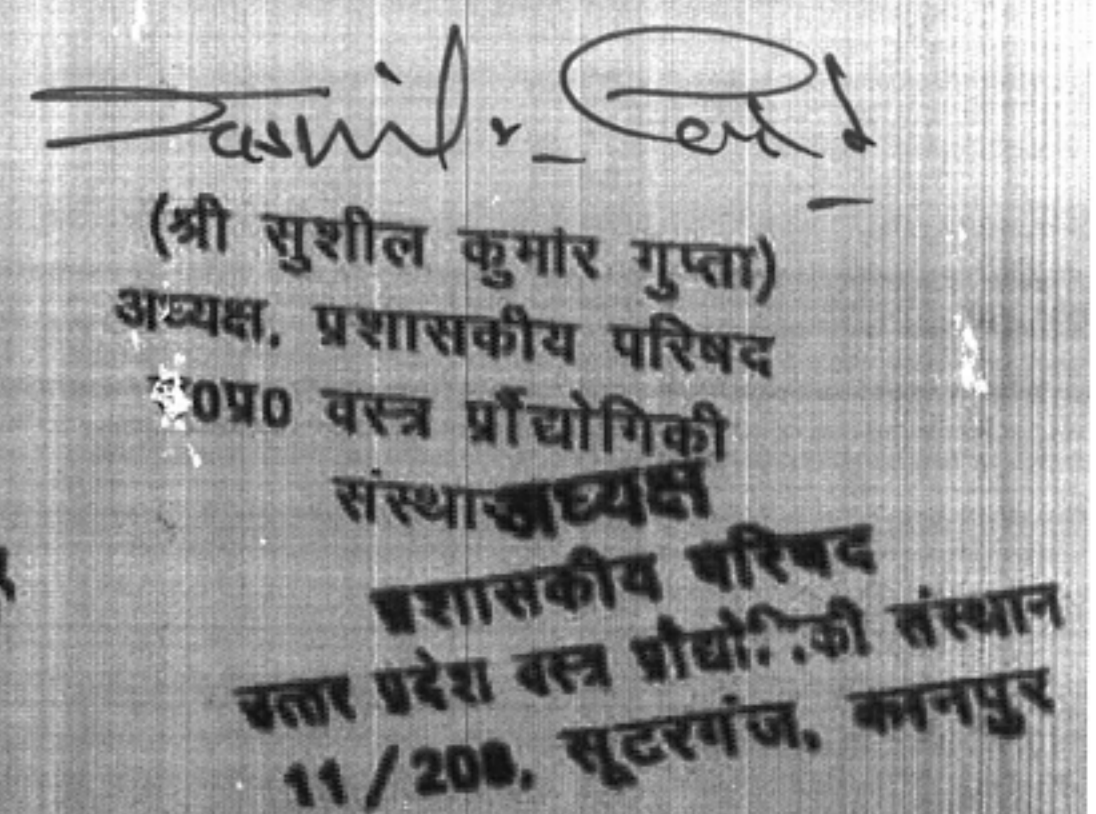 (श्री सुशील कुमार गुप्ता)
अध्यक्ष, प्रशासकीय परिषद
उ0प्र0 वस्त्र प्रौंद्योगिकी
अध्यक्ष
प्रशासकीय परिषद
उत्तर प्रदेश वस्त्र संस्थान
11/208, सूटरगंज, कानपुर